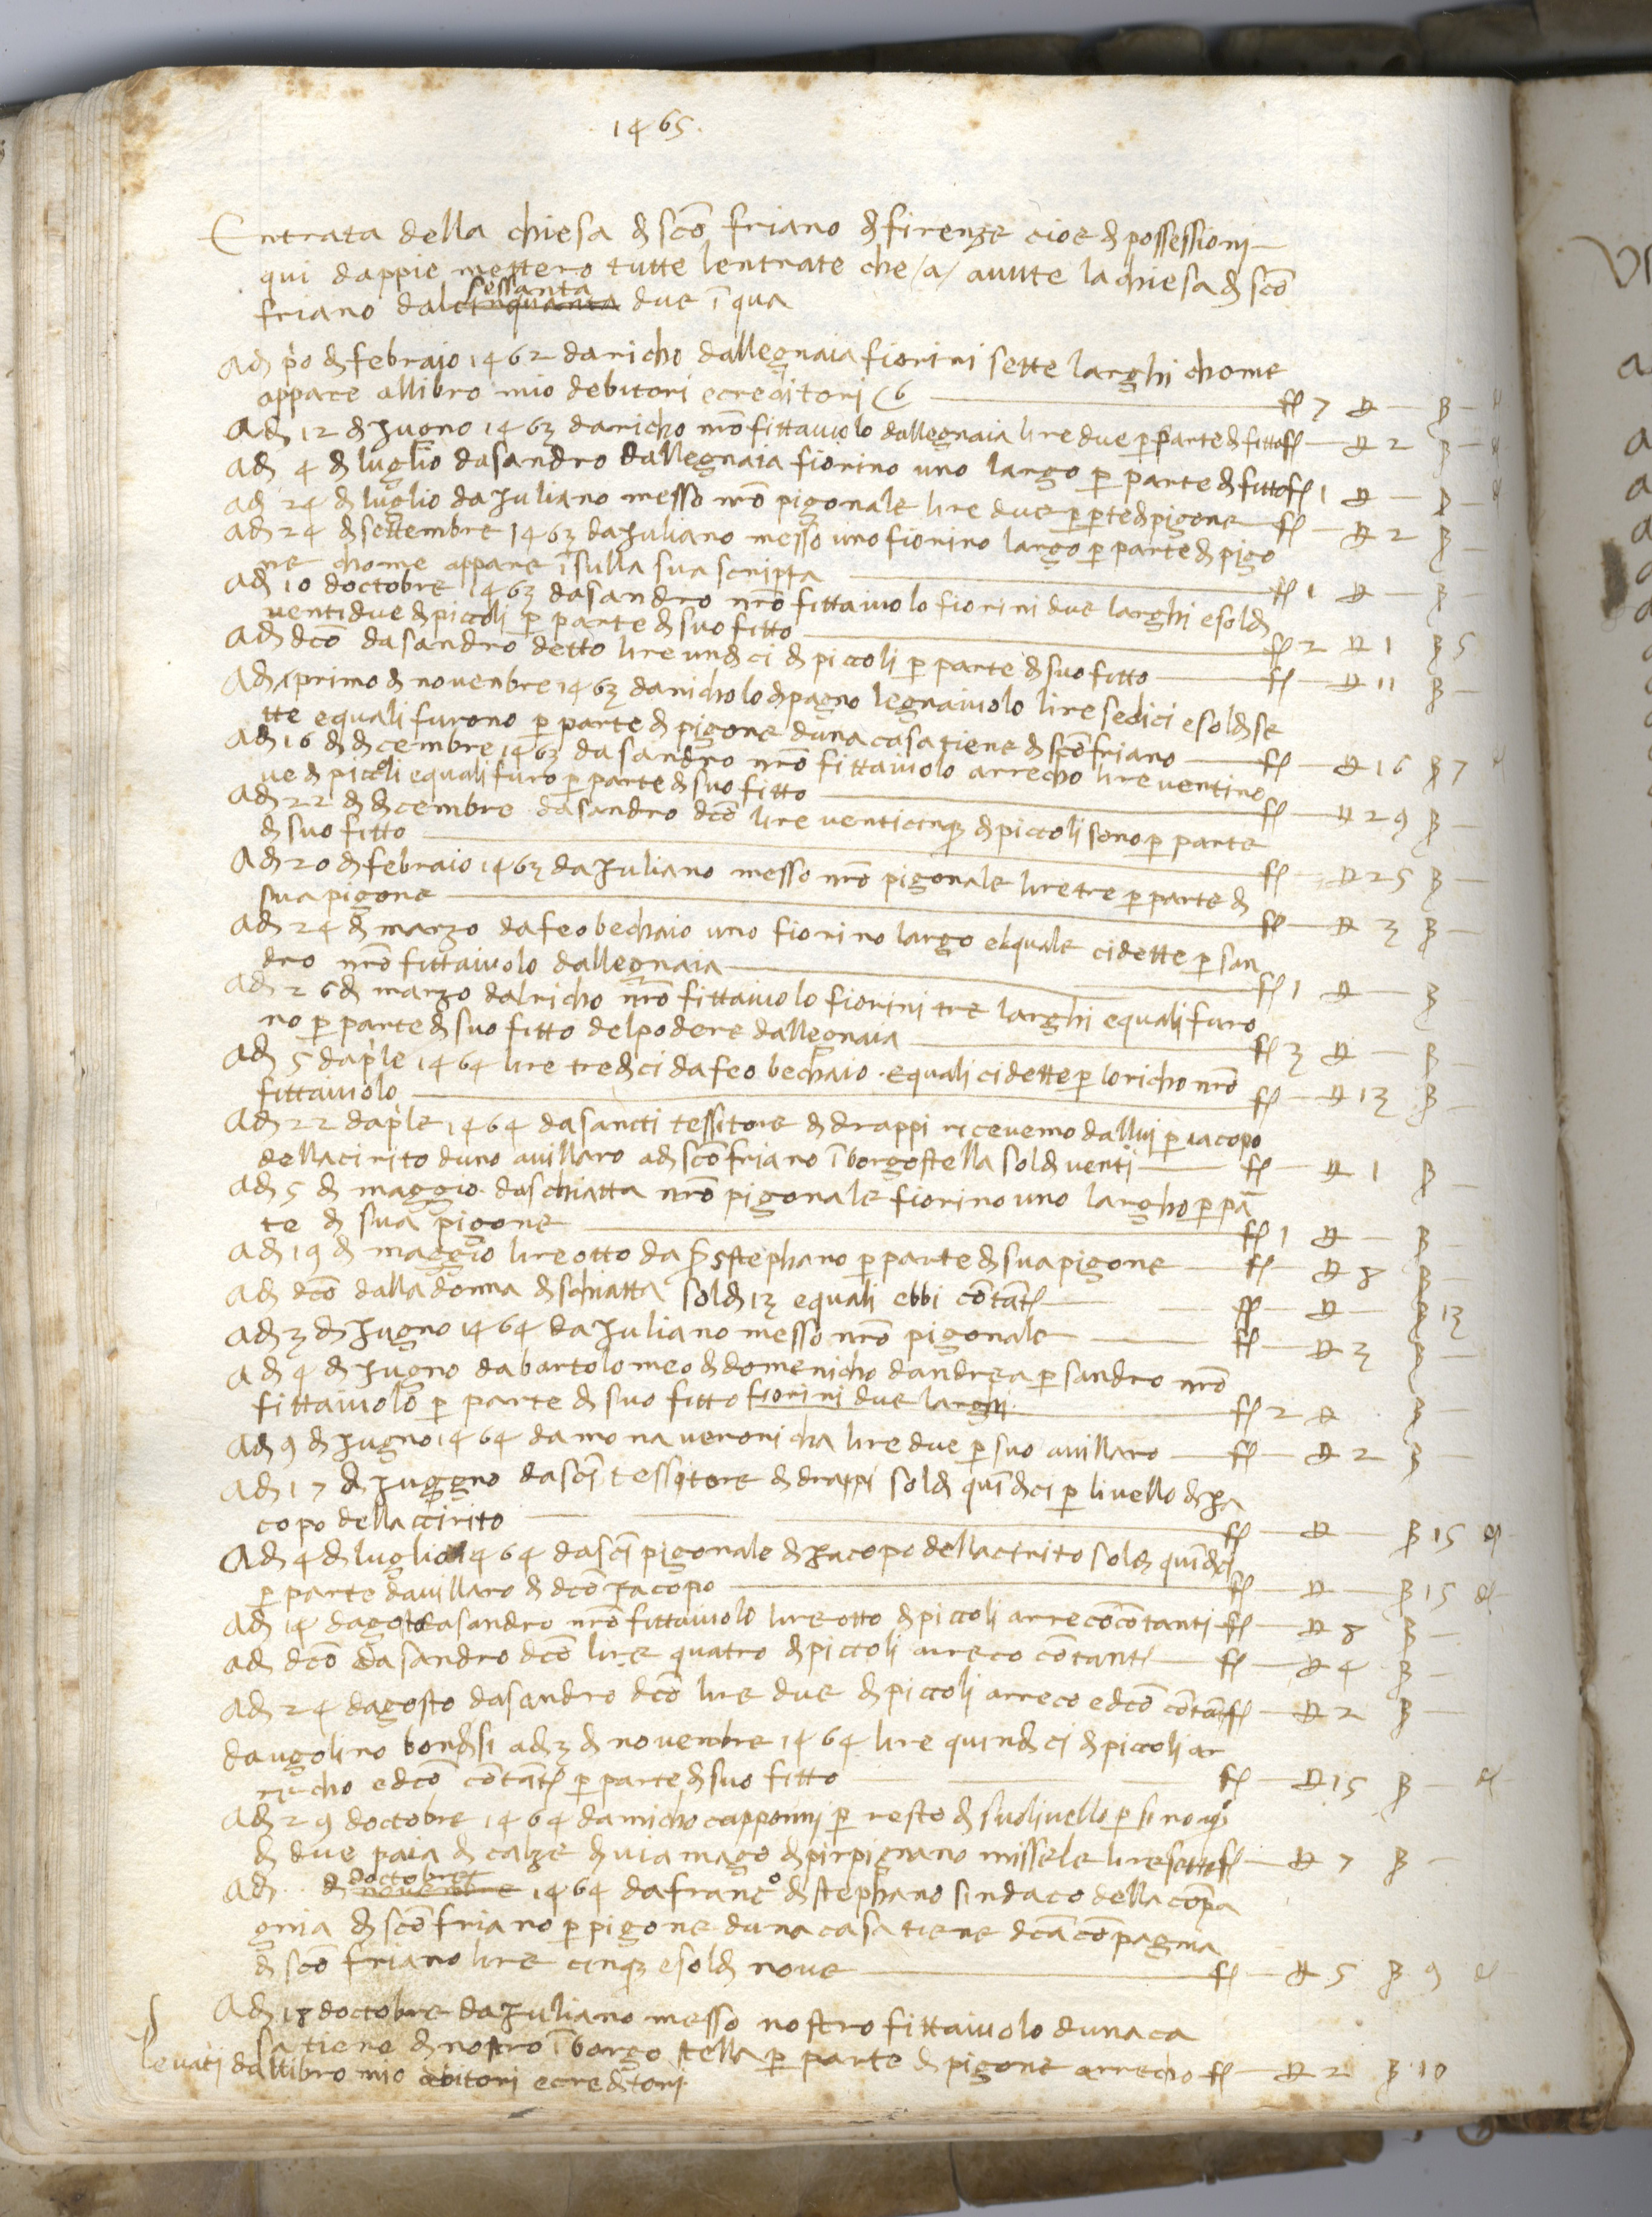 1465.
Entrata della chiesa di sco friano di firenze cioe di possessioni
qui dappie mettero tutte lentrate che /a/ avute la chiesa di sco
sessanta
friano dal cinquanta due i qua
Adi po di febraio 1462 daricho dallegnaia fiorini sette larghi chome
appare allibro mio debitori ecreditori c 6 — fl 7 £ — ß —
Adi 12 di Jugno 1463 daricho nro fittaiuolo dallegnaia lire due p parte di fitto fl — £ 2 ß —
Adi 4 di luglio dasandro dallegnaia fiorino uno largo p parte di fitto fl 1 £ — ß —
adi 24 di luglio da Juliano messo nro pigonale lire due p pte di pigone fl — £ 2 ß —
adi 24 di settembre 1463 da Juliano messo uno fiorino largo p parte di pigo
ne chome appare i sulla sua scripta — fl 1 £ — ß —
adi 10 doctobre 1463 dasandro nro fittaiuolo fiorini due larghi esoldi
ventidue di piccoli p parte di suo fitto — fl 2 £ 1 ß 5
adi dco dasandro detto lire undici di piccoli p parte di suo fitto — fl — £ 11 ß —
Adi primo di novenbre 1463 da nicholo di pagno legnaiuolo lire sedici esoldi se
tte equali furono p parte di pigone duna casa tiene di sco friano — fl — £ 16 ß 7
adi 16 di dicembre 1463 da sandro nro fittaiuolo arrecho lire ventino
ve di piccoli equali furo p parte di suo fitto — fl — £ 29 ß —
adi 22 di dicembre dasandro dco lire venticinq di piccoli sono p parte
di suo fitto — fl — £ 25 ß —
Adi 20 di febraio 1463 da Juliano messo nro pigonale lire tre p parte di
sua pigone — fl — £ 3 ß —
adi 24 di marzo dafeo bechaio uno fiorino largo elquale cidette p san
dro nro fittaiuolo dallegnaia — fl 1 £ — ß
adi 26 di marzo dalricho nro fittaiuolo fiorini tre larghi equali furo
no p parte di suo fitto delpodere dallegnaia — fl 3 £ — ß —
adi 5 daple 1464 lire tredici dafeo bechaio equali cidette p loricho nro
fittaiuolo — fl — £ 13 ß —
adi 22 daple 1464 dasancti tessitore di drappi ricevemo dallui p iacopo
dellacirito duno avillaro adi sco friano i borgo stella soldi venti — fl — £ 1 ß —
adi 5 di maggio daschiatta nro pigonale fiorino uno largho p pa
te di sua pigone — fl 1 £ — ß —
adi 19 di maggio lire otto da p stephano p parte di sua pigone — fl — £ 8 ß —
adi dco dalla donna di schiatta soldi 13 equali ebbi cotati — fl — £ — ß 13
adi 3 di Jugno 1464 da Juliano messo nro pigonale — fl — £ 3 ß —
adi 4 di Jugno dabartolomeo di domenicho dandrea p sandro nro
fittaiuolo p parte di suo fitto fiorini due larghi — fl 2 £ ß —
adi 9 di Jugno 1464 da mona veronicha lire due p suo avillaro — fl — £ 2 ß —
adi 17 di Juggno dasci tessitore di drappi soldi quidici p livello di Ja
copo dellaccirito — fl — £ — ß 15
Adi 4 di luglio 1464 dasci pigonale di Jacopo dellacirito soldi quidici
p parte davillaro di dco Jacopo — fl — £ — ß 15
adi 14 dagosto dasandro nro fittaiuolo lire otto di piccoli arreco cotanti fl — £ 8 ß —
adi dco dasandro dco lire quatro di piccoli arreco cotanti — fl — £ 4 ß —
adi 24 dagosto dasandro dco lire due di piccoli arreco edco cotati fl — £ 2 ß —
daugolino bondisi adi 3 di novenbre 1464 lire quindici di piccoli ar
recho edco cotati p parte di suo fitto — fl — £ 15 ß —
adi 29 doctobre 1464 da micho capponni p resto di suo livello p sino
di due paia di calze di via mago di pirpignano missele lire sette fl — £ 7 ß —
doctobre
adi di novenbre 1464 dafranco di stephano sindaco della copa
gnia di sco friano p pigone duna casa tiene dca copagnia
di sco friano lire cinq esoldi nove — fl — £ 5 ß 9
Adi 18 doctobre da Juliano messo nostro fittaiuolo duna ca
sa tiene di nostro i borgo stella p parte di pigone arrecho fl — £ 2 ß 10
levati dallibro mio debitori ecreditori